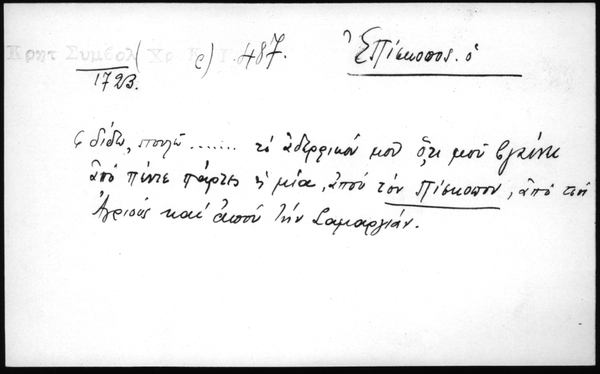 Κρητ Συμβολ ( Χρ Κ Ι. 487. Ἐπίσκοπος. ὁ
1723.
( δίδω, πουλῶ ....... τὸ ἀδερφικόν μου ὅτι μοῦ ἐγγίνει
ἀπὸ πέντε πάρτες ἡ μία, ἀπού τὸν Πίσκοπον, ἀπὸ τσὴ
Ἀγριοὺς καὶ ἀπού τὴν Σαμαργιάν.